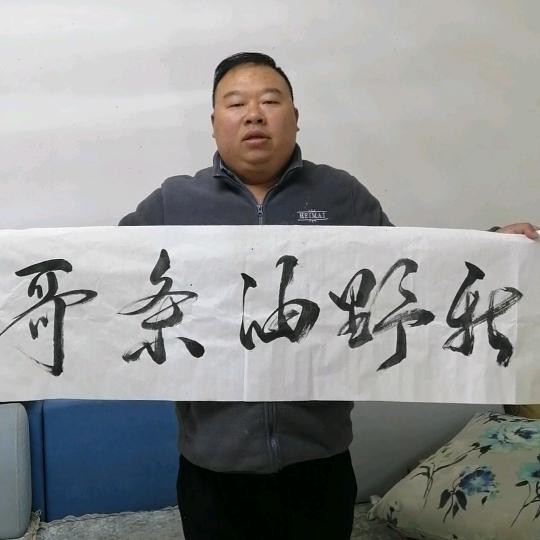 新野油条哥
HEIMAI